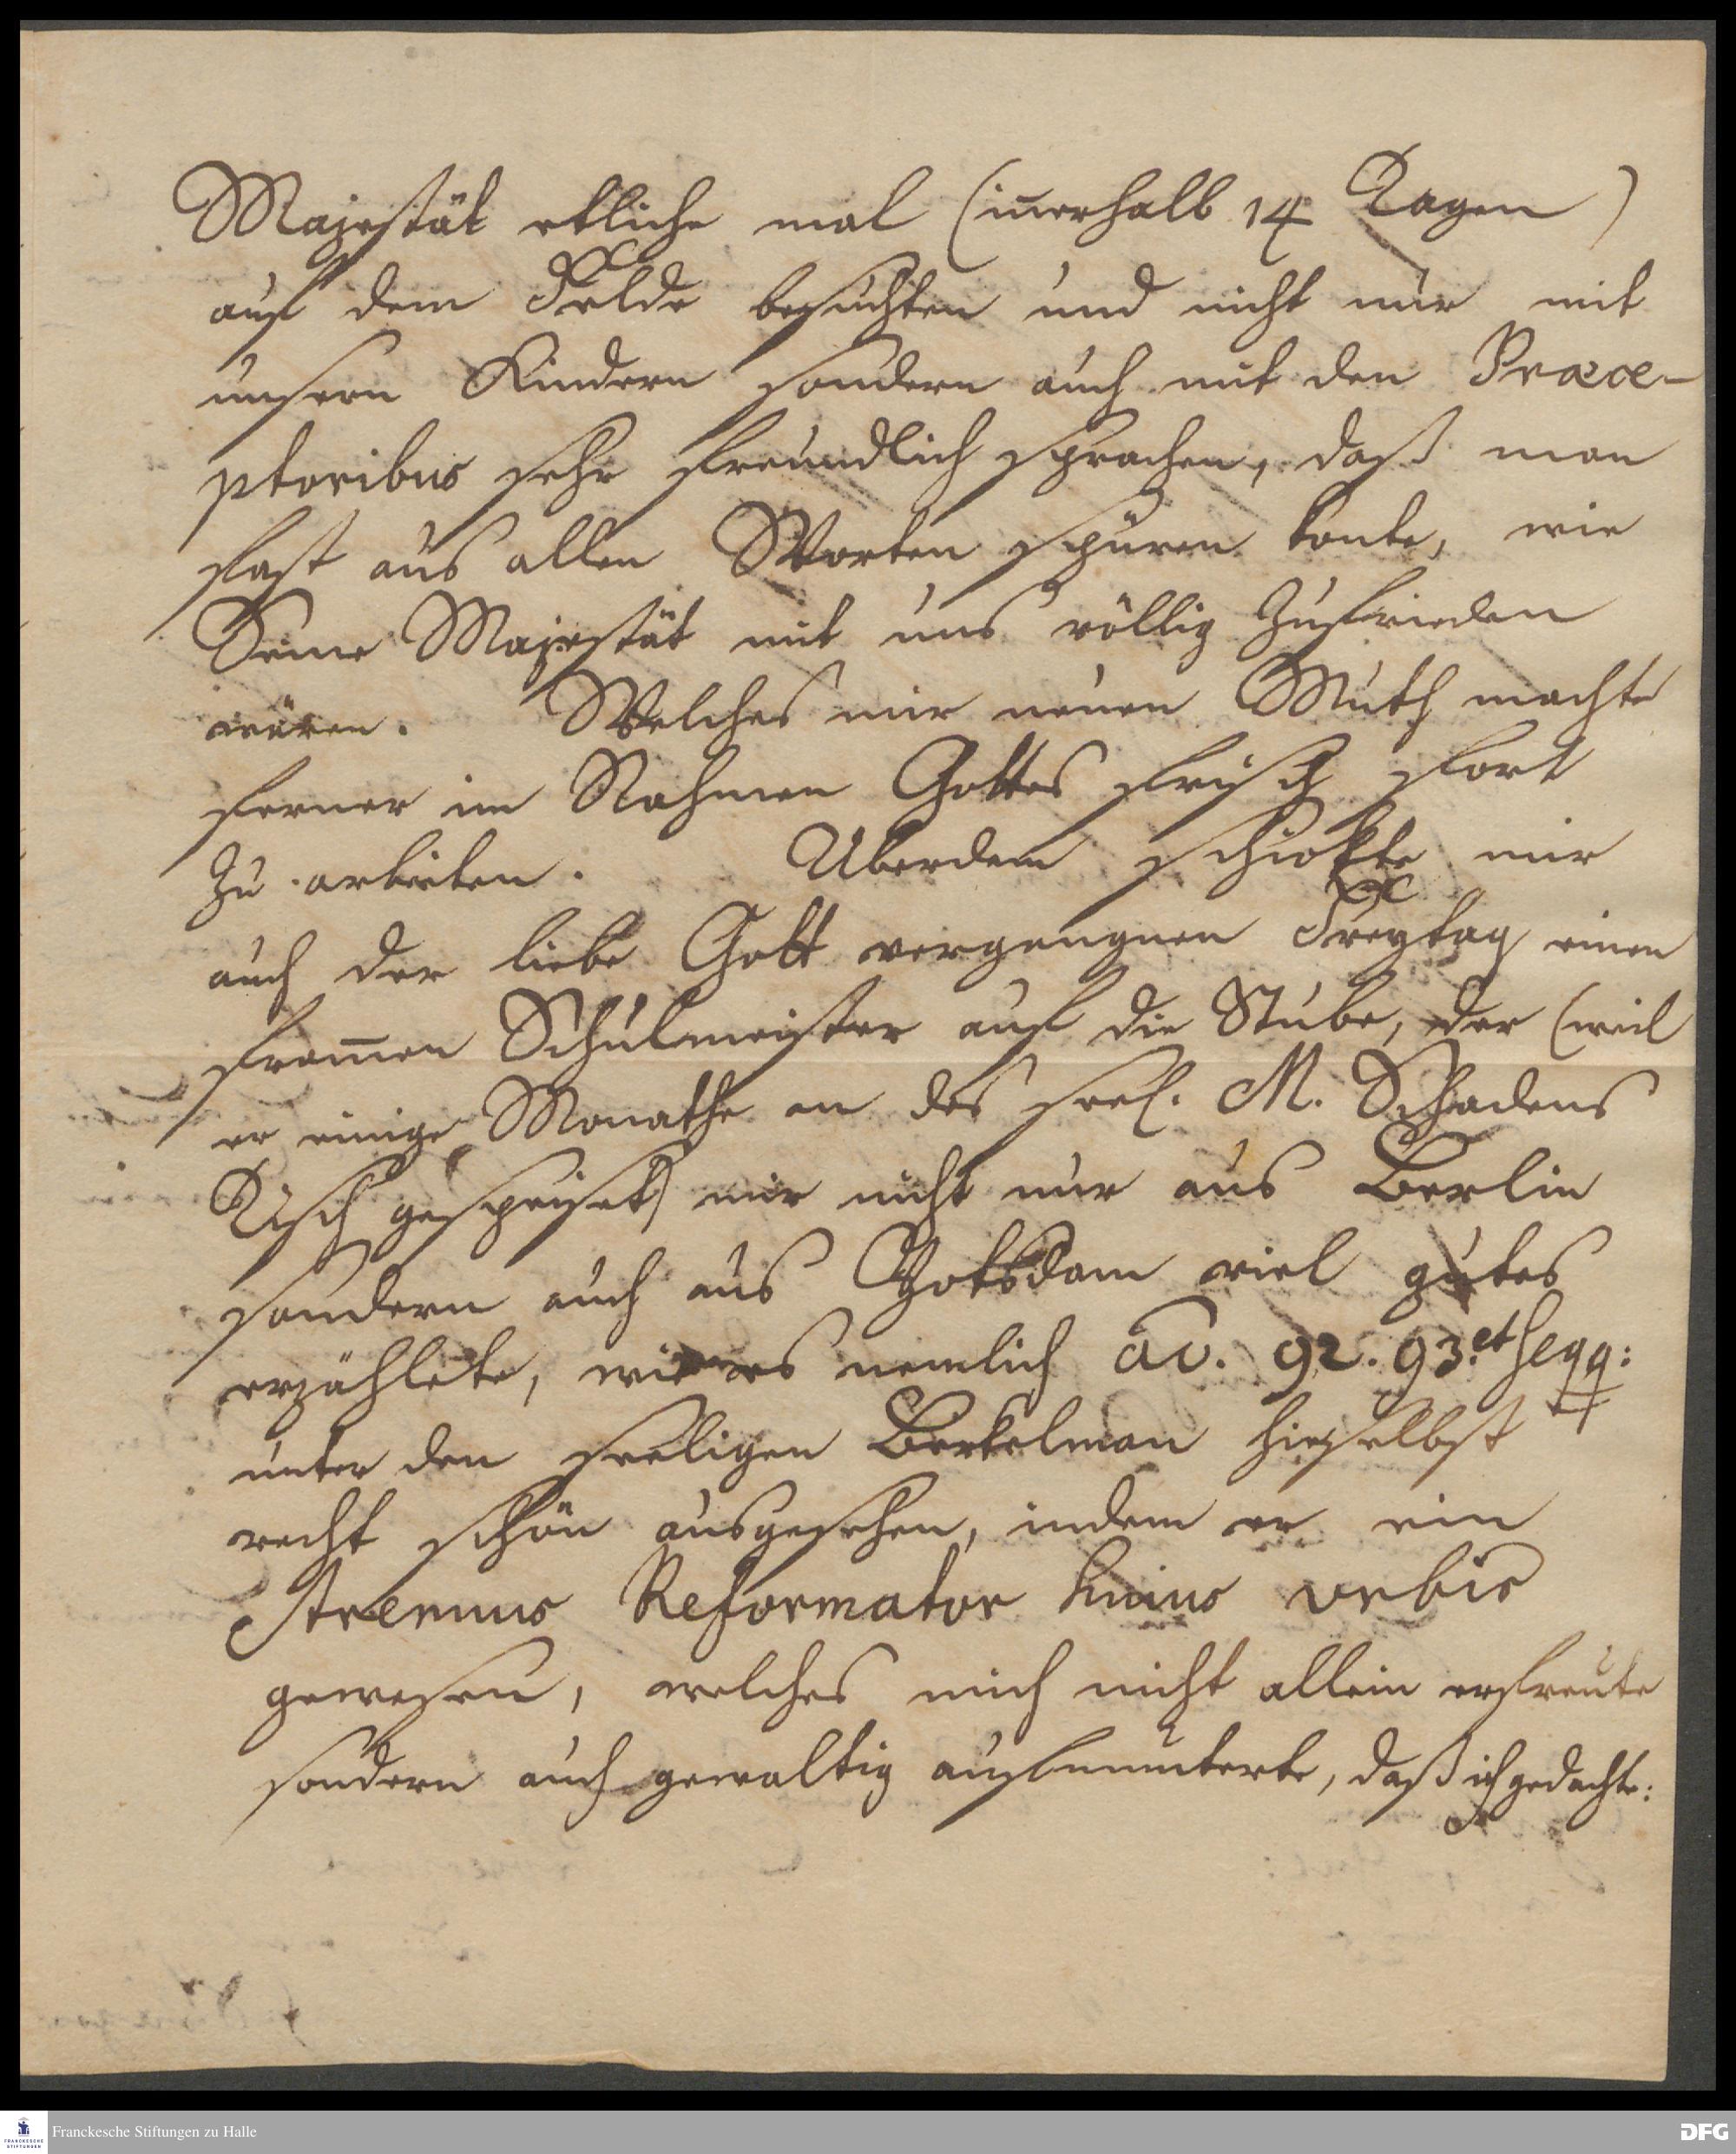 Majestät etliche mal (iñerhalb 14 Tagen)
auf dem Felde besuchten und nicht nur mit
unsern Kindern sondern auch mit den Præce-
ptoribus sehr freundlich sprachen, daß man
fast aus allen Worten spüren konte, wie
Seine Majestät mit uns völlig zufrieden
wären. Welches mir neuen Muth machte
ferner im Nahmen Gottes frisch fort
zu arbeiten. Uberdem schickte mir
auch der liebe Gott vergangnen Freytag einen
from̃en Schulmeister auf die Stube, der (weil
er einige Monathe an des seel. M. Schadens
Tisch gespeiset) mir nicht nur aus Berlin
sondern auch aus Potsdam viel gutes
erzählete, wie es nemlich ao. 92. 93. et seqq:
unter den seeligen Berkelman hieselbst
recht schön ausgesehen, indem er ein
Strenuus Reformator huius urbis
gewesen, welches mich nicht allein erfreute
sondern auch gewaltig aufmunterte, daß ich gedachte:
Franckesche Stiftungen zu Halle
DFG